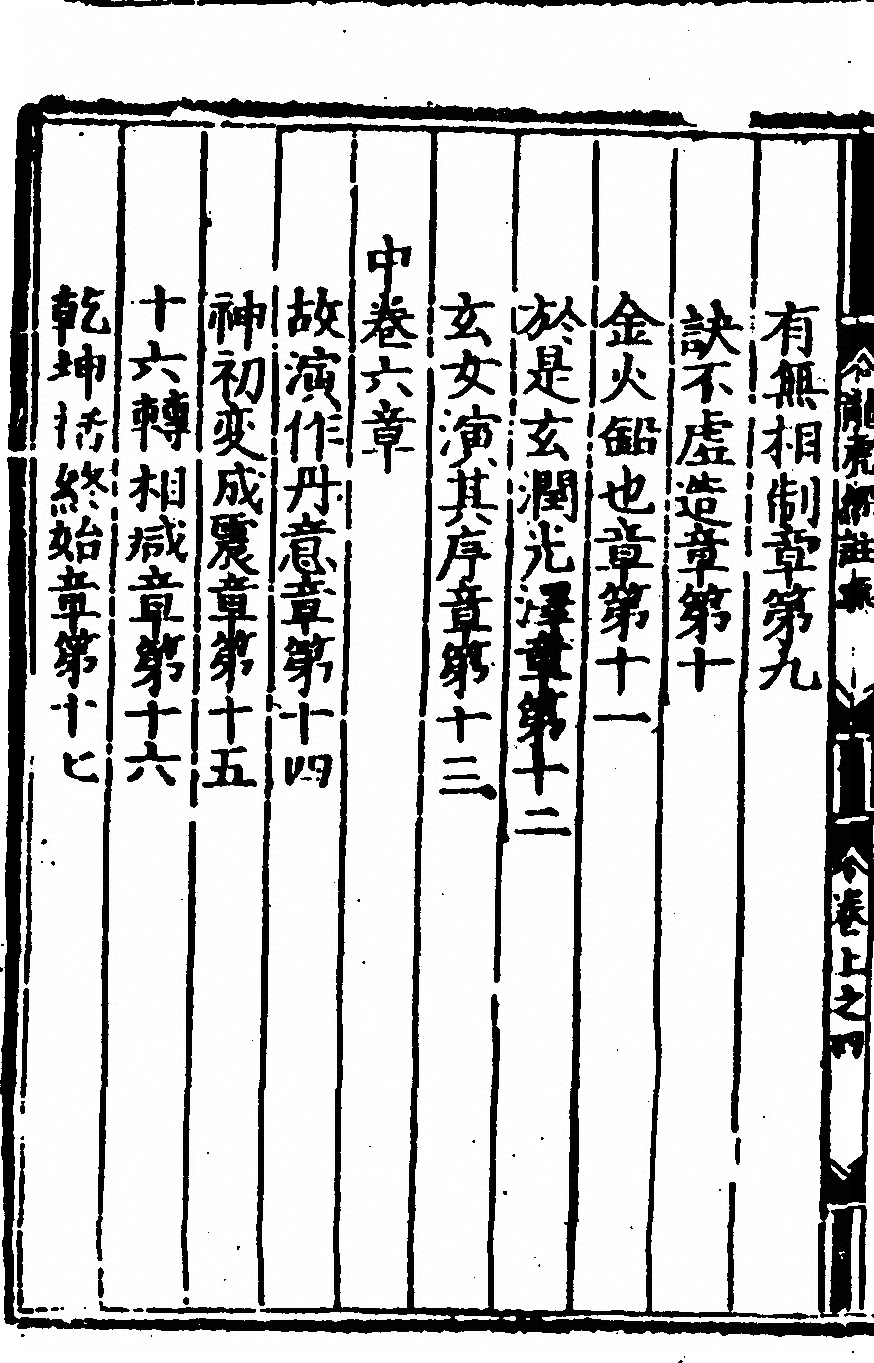 有無相制章第九
訣不虚造章第十
金火鉛也章第十一
於是玄潤光澤章第十二
玄女演其序章第十三
中卷六章
故演作丹意章第十四
神初变成震章第十五
十六轉相減章第十六
乾坤括終始章第十七
卷上之四